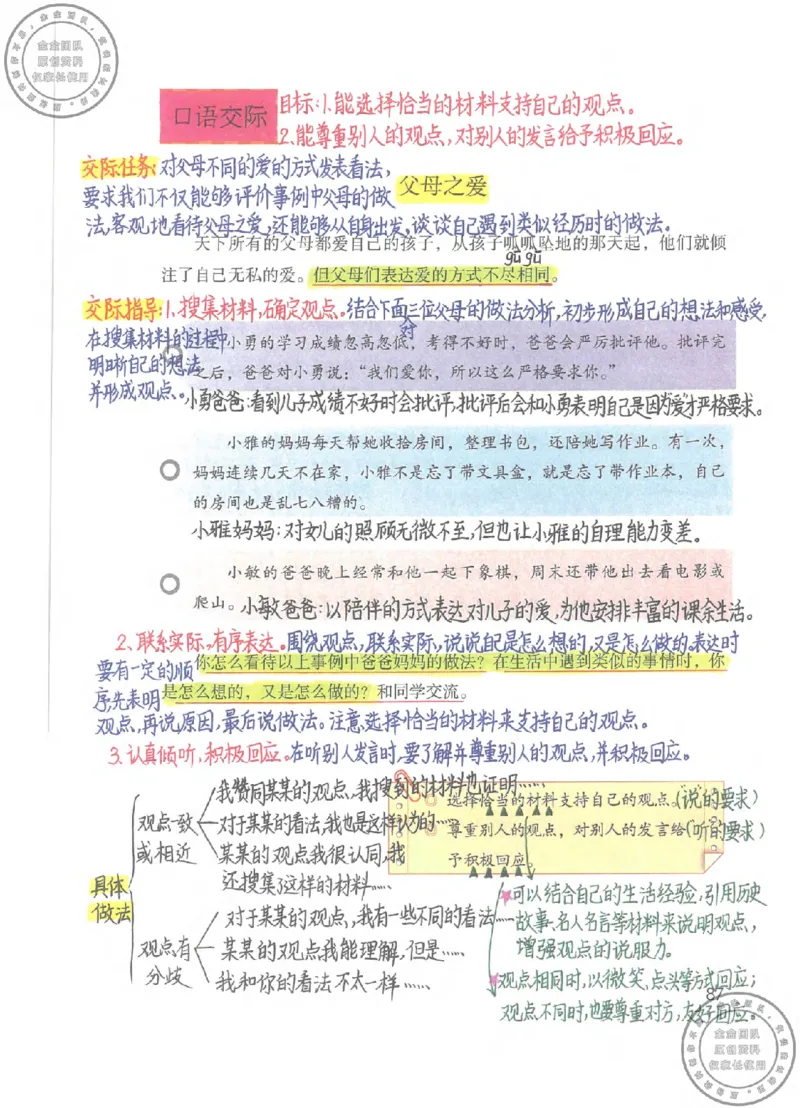 金金团队
原创资料
仅家长使用
口语交际
目标:1.能选择恰当的材料支持自己的观点。
2.能尊重别人的观点,对别人的发言给予积极回应。
交际任务:对父母不同的爱的方式发表看法,
要求我们不仅能够评价事例中父母的做
父母之爱
法,客观地看待父母之爱,还能够从自身出发,谈谈自己遇到类似经历时的做法。
天下所有的父母都爱自己的孩子,从孩子呱呱坠地的那天起,他们就倾
gū gū
注了自己无私的爱。但父母们表达爱的方式不尽相同。
交际指导:1.搜集材料,确定观点。结合下面三位父母的做法分析,初步形成自己的想法和感受,
在搜集材料的过程中
对
明晰自己的想法
并形成观点。
小勇的学习成绩忽高忽低,考得不好时,爸爸会严厉批评他。批评完
之后,爸爸对小勇说:“我们爱你,所以这么严格要求你。”
小勇爸爸:看到儿子成绩不好时会批评,批评后会和小勇表明自己是因为“爱”才严格要求。
小雅的妈妈每天帮她收拾房间,整理书包,还陪她写作业。有一次,
妈妈连续几天不在家,小雅不是忘了带文具盒,就是忘了带作业本,自己
的房间也是乱七八糟的。
小雅妈妈:对女儿的照顾无微不至,但也让小雅的自理能力变差。
小敏的爸爸晚上经常和他一起下象棋,周末还带他出去看电影或
爬山。
小敏爸爸:以陪伴的方式表达对儿子的爱,为他安排丰富的课余生活。
2.联系实际,有序表达。围绕观点,联系实际,说说自己是怎么想的,又是怎么做的。表达时
要有一定的顺
序先表明
你怎么看待以上事例中爸爸妈妈的做法?在生活中遇到类似的事情时,你
是怎么想的,又是怎么做的?和同学交流。
观点,再说原因,最后说做法。注意选择恰当的材料来支持自己的观点。
3.认真倾听,积极回应。在听别人发言时,要了解并尊重别人的观点,并积极回应。
具体
做法
观点一致
或相近
我赞同某某的观点,我搜到的材料也证明……
对于某某的看法,我也是这样认为的……
某某的观点我很认同,我
还搜集了这样的材料……
观点有
分歧
对于某某的观点,我有一些不同的看法……
某某的观点我能理解,但是……
我和你的看法不太一样……
选择恰当的材料支持自己的观点。(说的要求)
尊重别人的观点,对别人的发言给(听的要求)
予积极回应。
可以结合自己的生活经验,引用历史
故事、名人名言等材料来说明观点,
增强观点的说服力。
观点相同时,以微笑、点头等方式回应;
观点不同时,也要尊重对方,友好回应。
87
金金团队
原创资料
仅家长使用